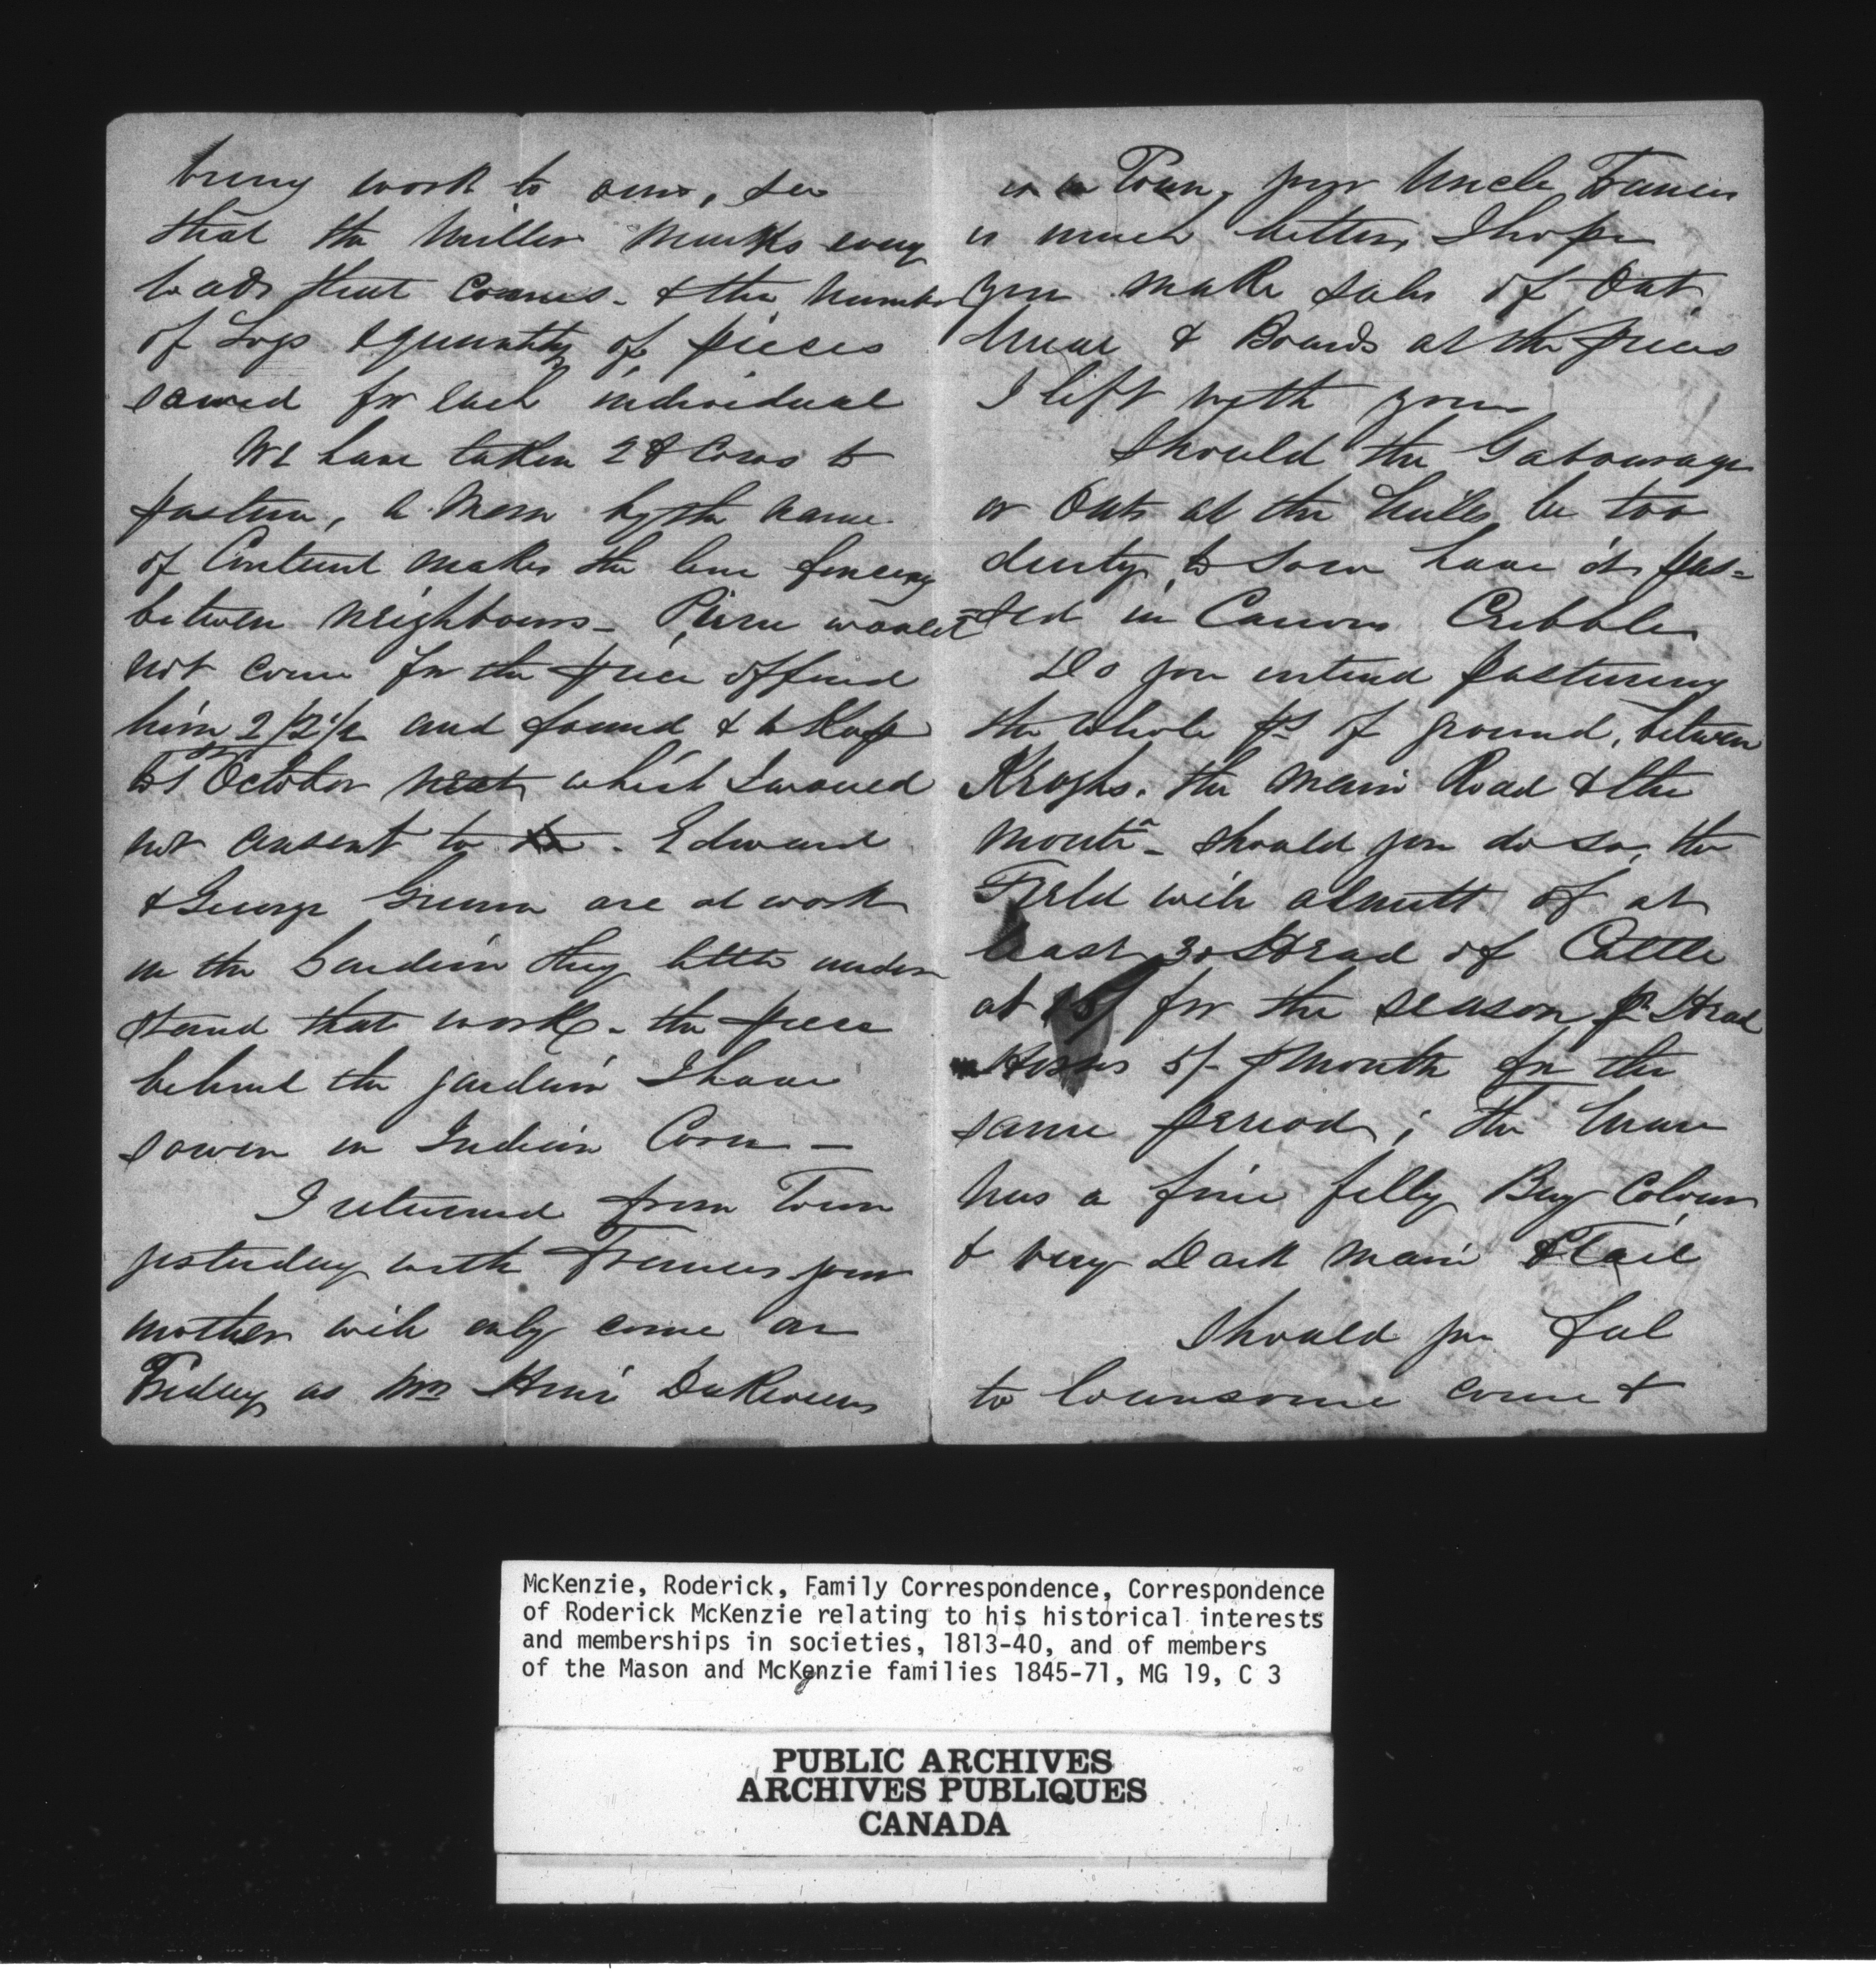 bring work to our, see
that the Miller Marks every
loads that comes - & the Number
of Logs & quantity of pieces
sawed for each individual
We have taken 28 Cows to
pasture, a Man by the name
of Content makes the line fencing
between neighbours - Pierre would
not come for the price offered
him 2/2½ and found & to Keep
to 1st October next which I would
not consent to - Edward
& George are at work
in the Gardin they little under
stand that work - the piece
behind the gardin I have
sowen in Indian Corn -
I returned from Town
yesterday with Frances your
mother will only come on
Friday as Mrs Henri
is in Town, your Uncle Francis
is much better, I hope
you make sales of Oat
& Boards at the prices
I left with you
Should the Gabourage
or Oats at the Mills be too
dirty to Sow have it pas=
=sed in Carrons Cribble
Do you intend pasturing
the whole ps of ground, between
Kroghs, the Main Road & the
Mountn - should you do so, the
Field will admitt of at
least 30 Head of Cattle
at 15/ for the season pr Head
Horses 5/- p month for the
same period; The Mare
has a fine filly Bay Colour
& very Dark Main & Tail
Should you feel
to lounsome come &
McKenzie, Roderick, Family Correspondence, Correspondence
of Roderick McKenzie relating to his historical interests
and memberships in societies, 1813-40, and of members
of the Mason and McKenzie families 1845-71, MG 19, C 3
PUBLIC ARCHIVES
ARCHIVES PUBLIQUES
CANADA